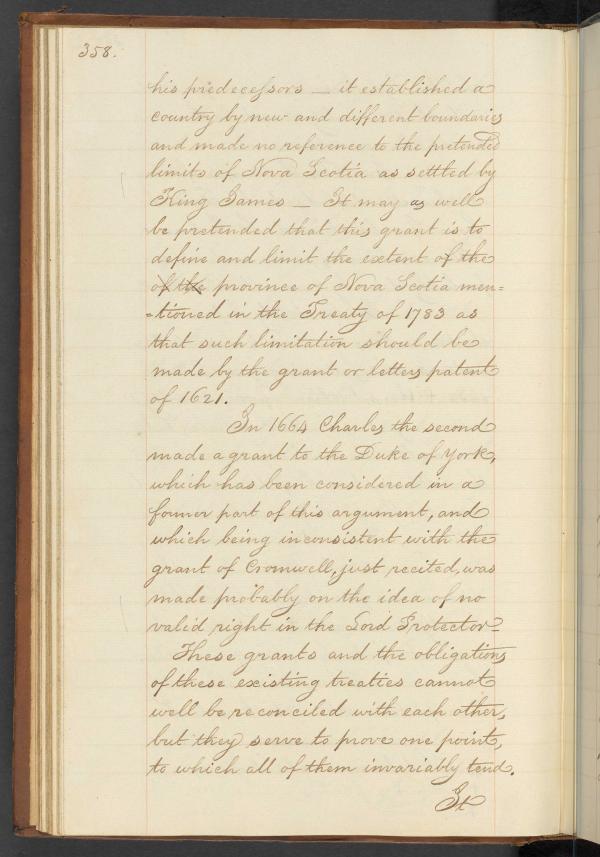 358.
his predecessors — it established a
country by new and different boundaries
and made no reference to the pretended
limits of Nova Scotia as settled by
King James — It may as well
be pretended that this grant is to
define and limit the extent of the
of the province of Nova Scotia men=
=tioned in the Treaty of 1783 as
that such limitation should be
made by the grant or letters patent
of 1621.
In 1664 Charles the second
made a grant to the Duke of York,
which has been considered in a
former part of this argument, and
which being inconsistent with the
grant of Cromwell, just recited, was
made probably on the idea of no
valid right in the Lord Protector—
These grants and the obligations
of these existing treaties cannot
well be reconciled with each other,
but they serve to prove one point,
to which all of them invariably tend.
It